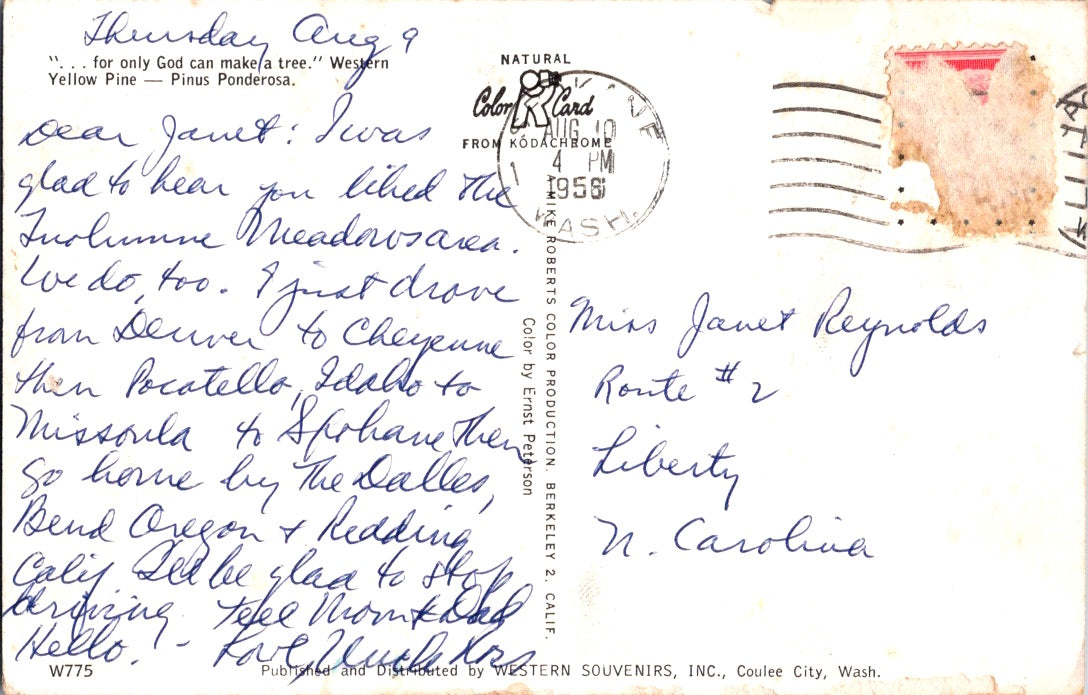 Thursday Aug 9
". . . for only God can make a tree." Western
Yellow Pine — Pinus Ponderosa.
Dear Janet: I was
glad to hear you liked the
Tuolumne Meadows area.
We do, too. I just drove
from Denver to Cheyenne
then Pocatello, Idaho to
Missoula to Spokane then
go home by The Dalles,
Bend Oregon & Redding
Calif. I'll be glad to stop
driving. Tell Mom & Dad
Hello. - Love, Uncle Ross
W775
NATURAL
Color Card
FROM KODACHROME
AUG 10
4 PM
1956
WASH.
A MIKE ROBERTS COLOR PRODUCTION. BERKELEY 2, CALIF.
Color by Ernst Peterson
Miss Janet Reynolds
Route # 2
Liberty
N. Carolina
Published and Distributed by WESTERN SOUVENIRS, INC., Coulee City, Wash.